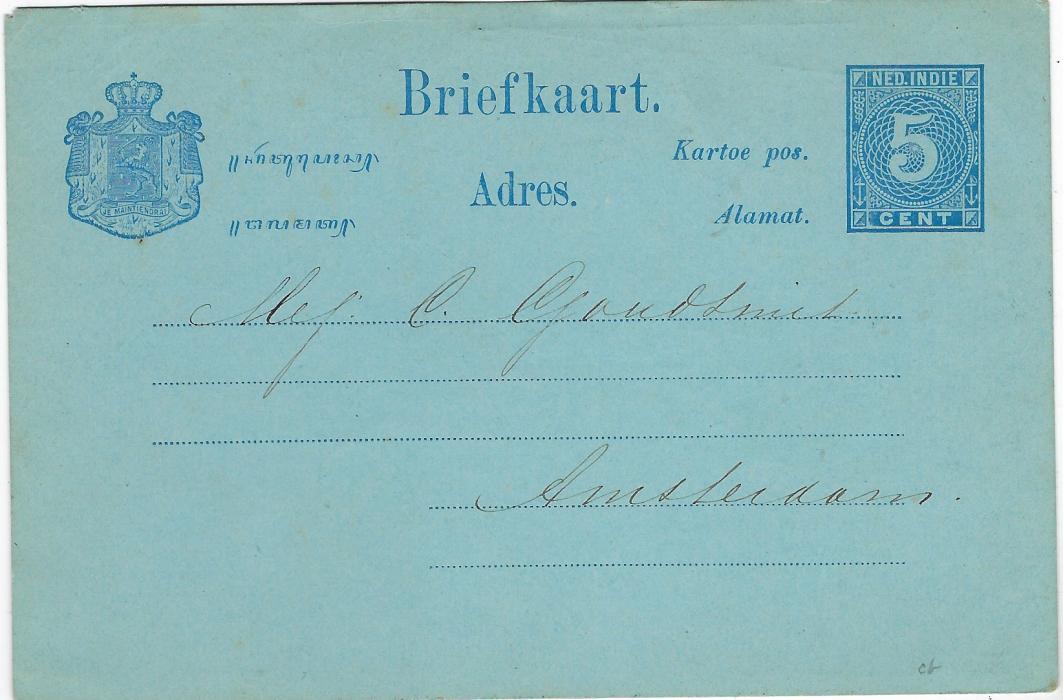 Briefkaart.
NED. INDIE
5
CENT
Kartoe pos.
Adres.
Alamat.
JE MAINTIENDRAI
Mej. C. Goudsmit
Amsterdam.
cb